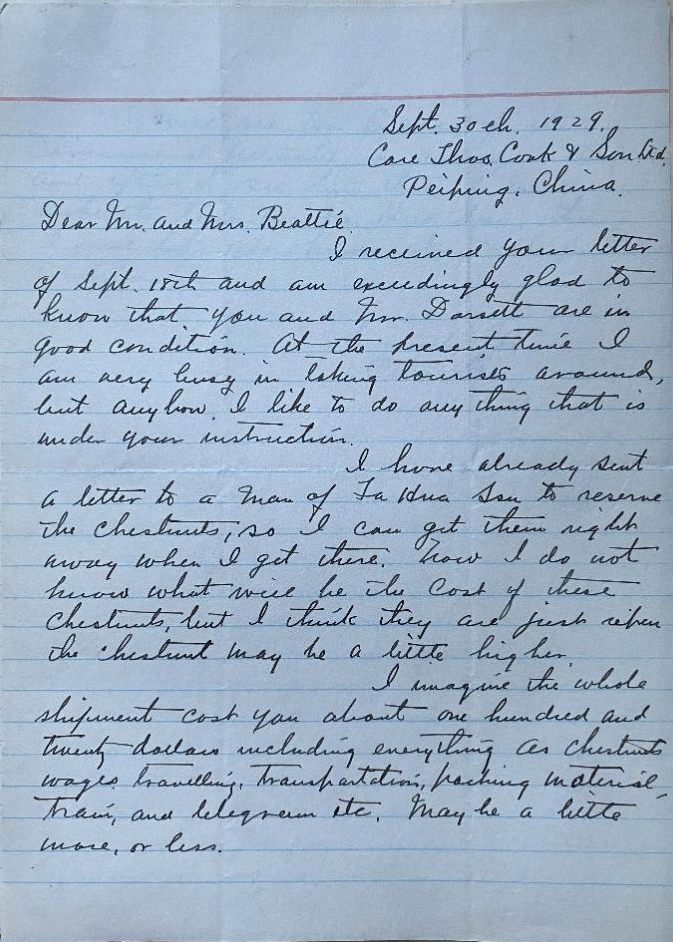 Sept. 30th. 1929.
Care Thos. Cook & Son Ltd.
Peiping, China.
Dear Mr. and Mrs. Beattie
I received your letter
of Sept. 18th and am exceedingly glad to
know that you and Mr. Dorsett are in
good condition. At the present time I
am very busy in taking tourists around,
but anyhow, I like to do any thing that is
under your instruction.
I have already sent
a letter to a man of Ta Hua Ssu to reserve
the chestnuts, so I can get them right
away when I get there. Now I do not
know what will be the cost of these
chestnuts, but I think they are just ripen
the chestnut may be a little higher.
I imagine the whole
shipment cost you about one hundred and
twenty dollars including everything as chestnuts
wages, travelling, transportation, packing material,
train, and telegram etc. May be a little
more, or less.